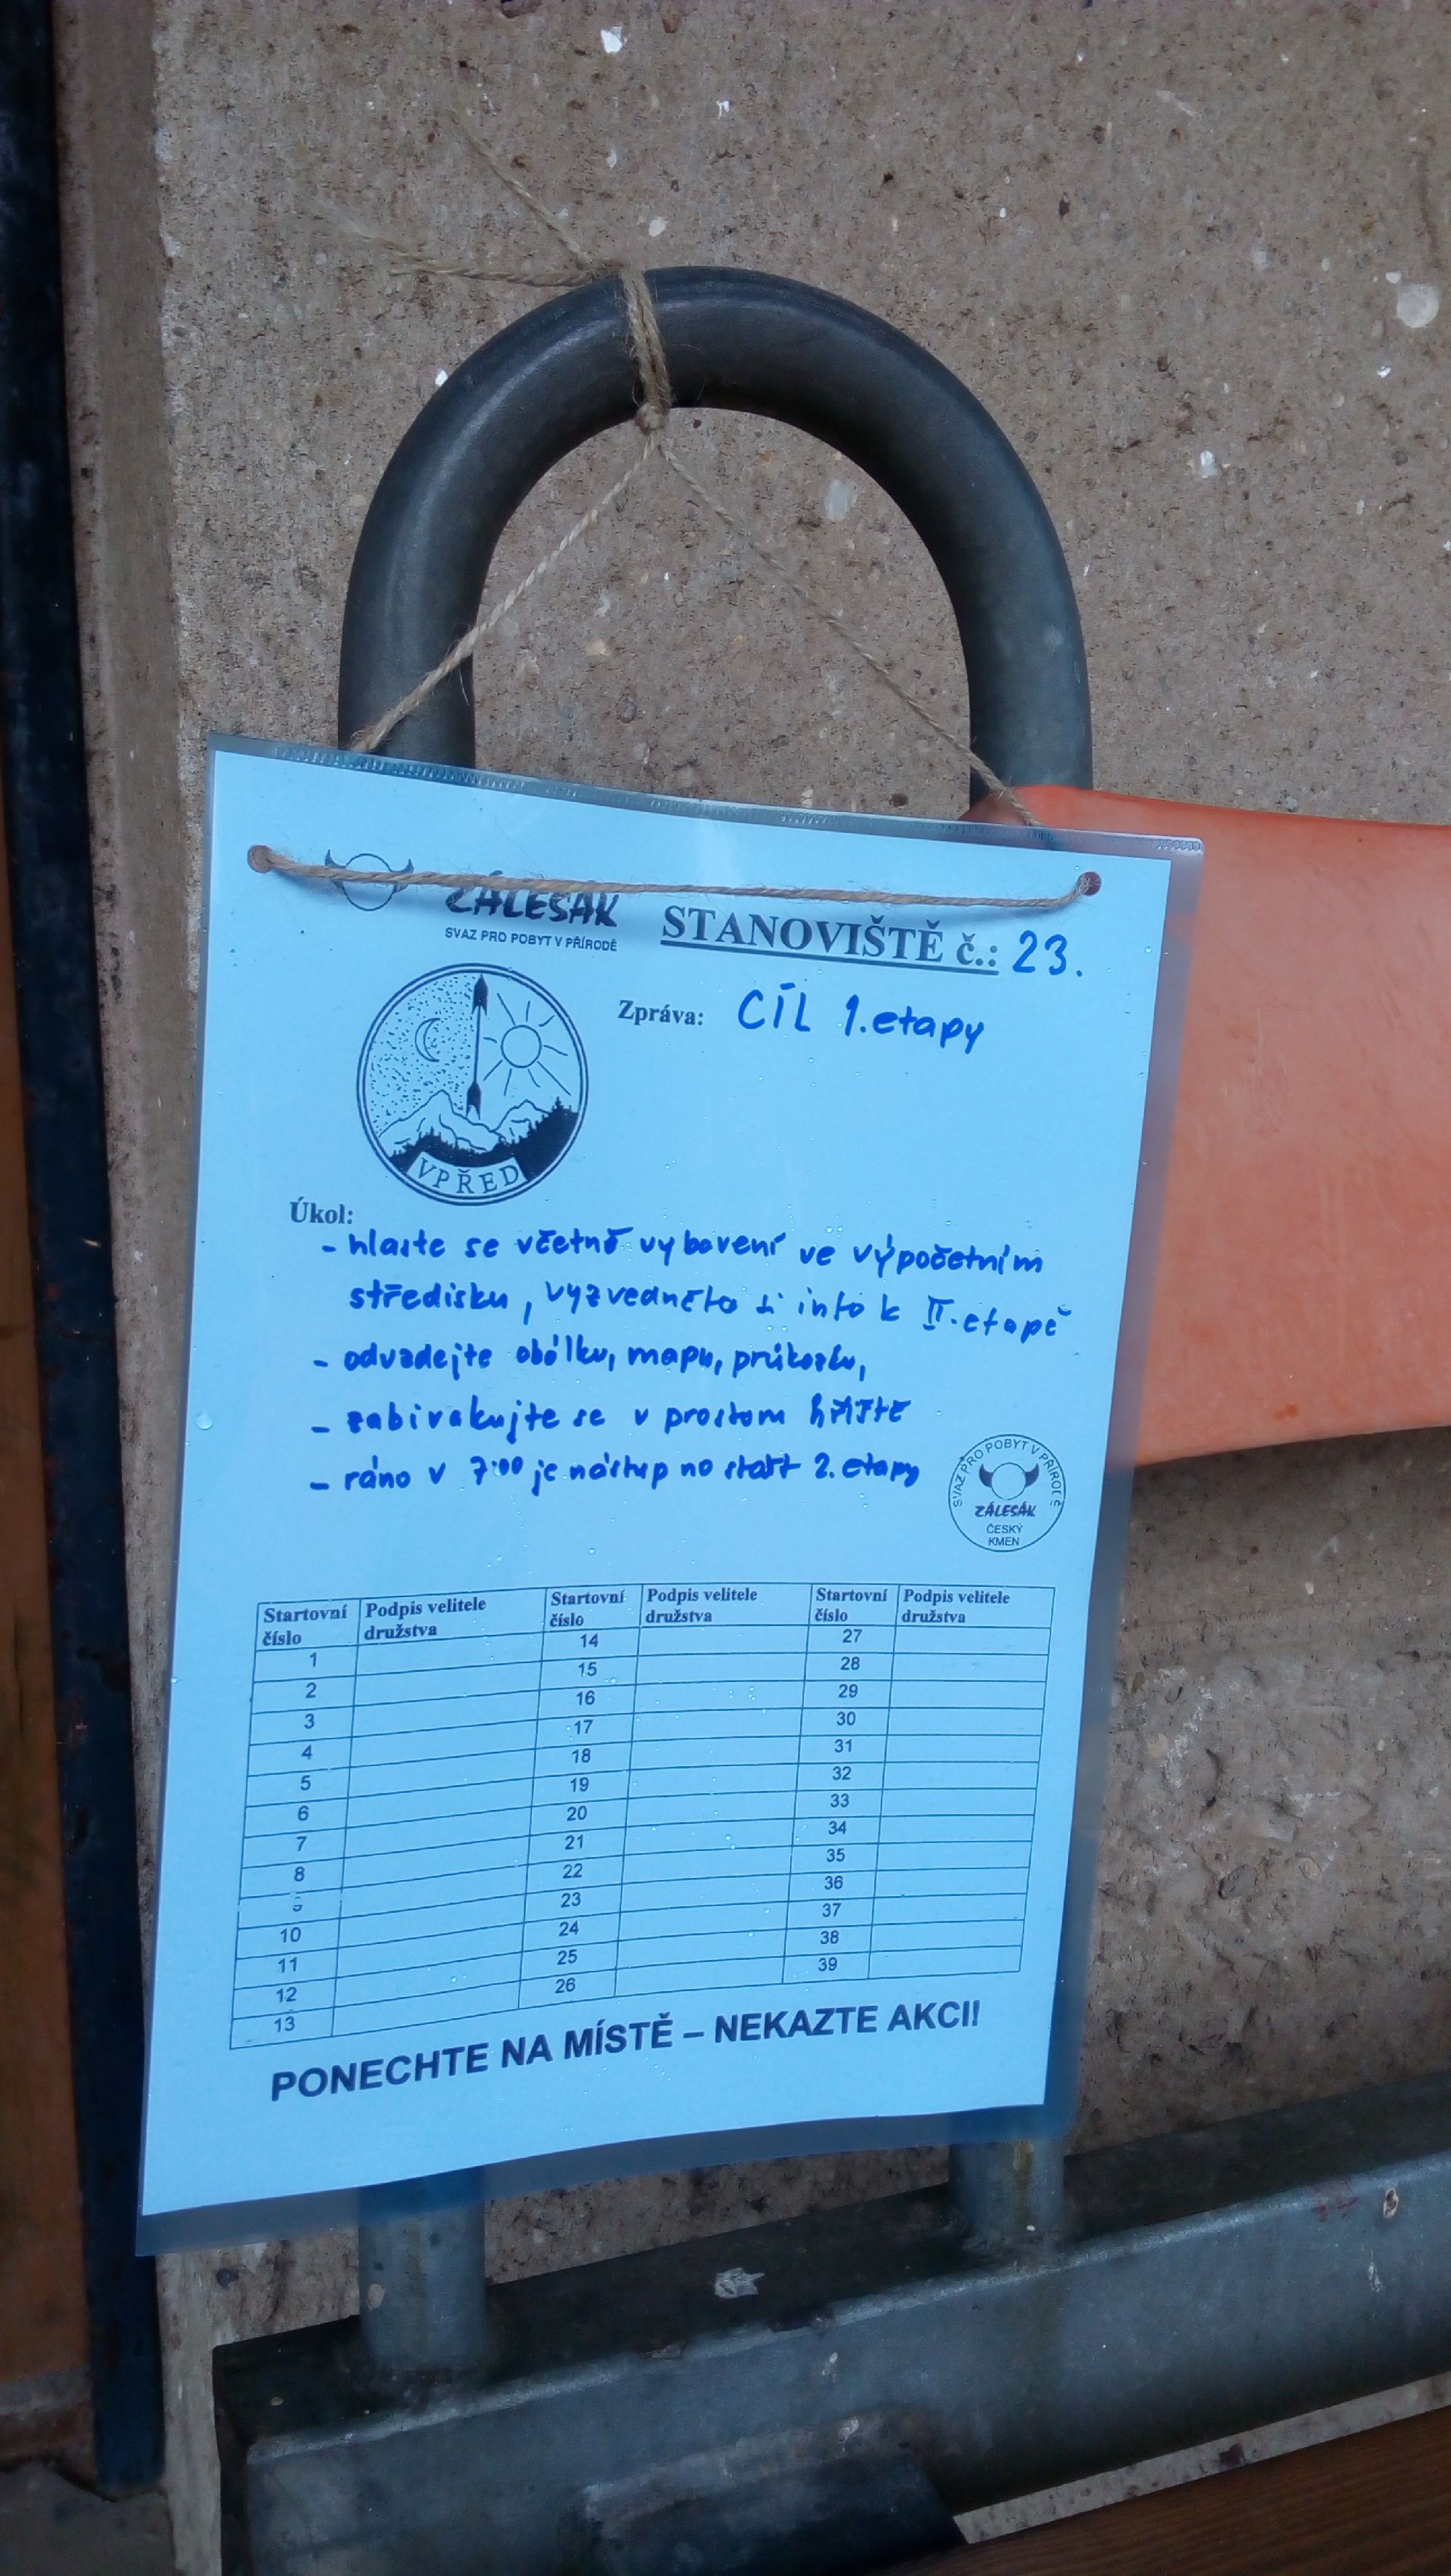 ZÁLESÁK
SVAZ PRO POBYT V PŘÍRODĚ
STANOVIŠTĚ č.: 23.
Zpráva: CÍL 1. etapy
VPŘED
Úkol:
- hlaste se včetně vybavení ve výpočetním
středisku, vyzvedněte si info k II. etapě
- odvzdejte obálku, mapu, průkazku,
- zabivakujte se v prostoru hřiště
- ráno v 7:00 je nástup na start 2. etapy
SVAZ PRO POBYT V PŘÍRODĚ
ZÁLESÁK
ČESKÝ
KMEN
Startovní číslo Podpis velitele družstva Startovní číslo Podpis velitele družstva Startovní číslo Podpis velitele družstva
1 14 27
2 15 28
3 16 29
4 17 30
5 18 31
6 19 32
7 20 33
8 21 34
9 22 35
10 23 36
11 24 37
12 25 38
13 26 39
PONECHTE NA MÍSTĚ – NEKAZTE AKCI!